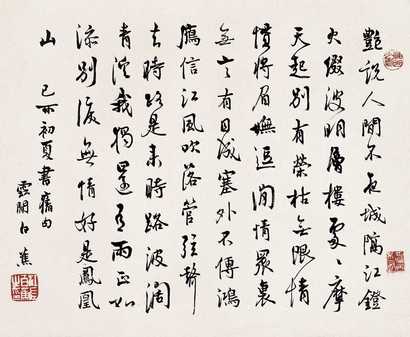 艷說人間不夜城隔江鐙
火綴波明層樓處〻摩
天起別有榮枯無限情
將眉嫵逗閒情眾裏
無言有目成塞外不傳鴻
雁信江風吹落管弦聲
去時路是來時路波濶
青溪我獨還雨正如
流別後無情好是鳳凰
山
己亥初夏書舊句
雲間白蕉